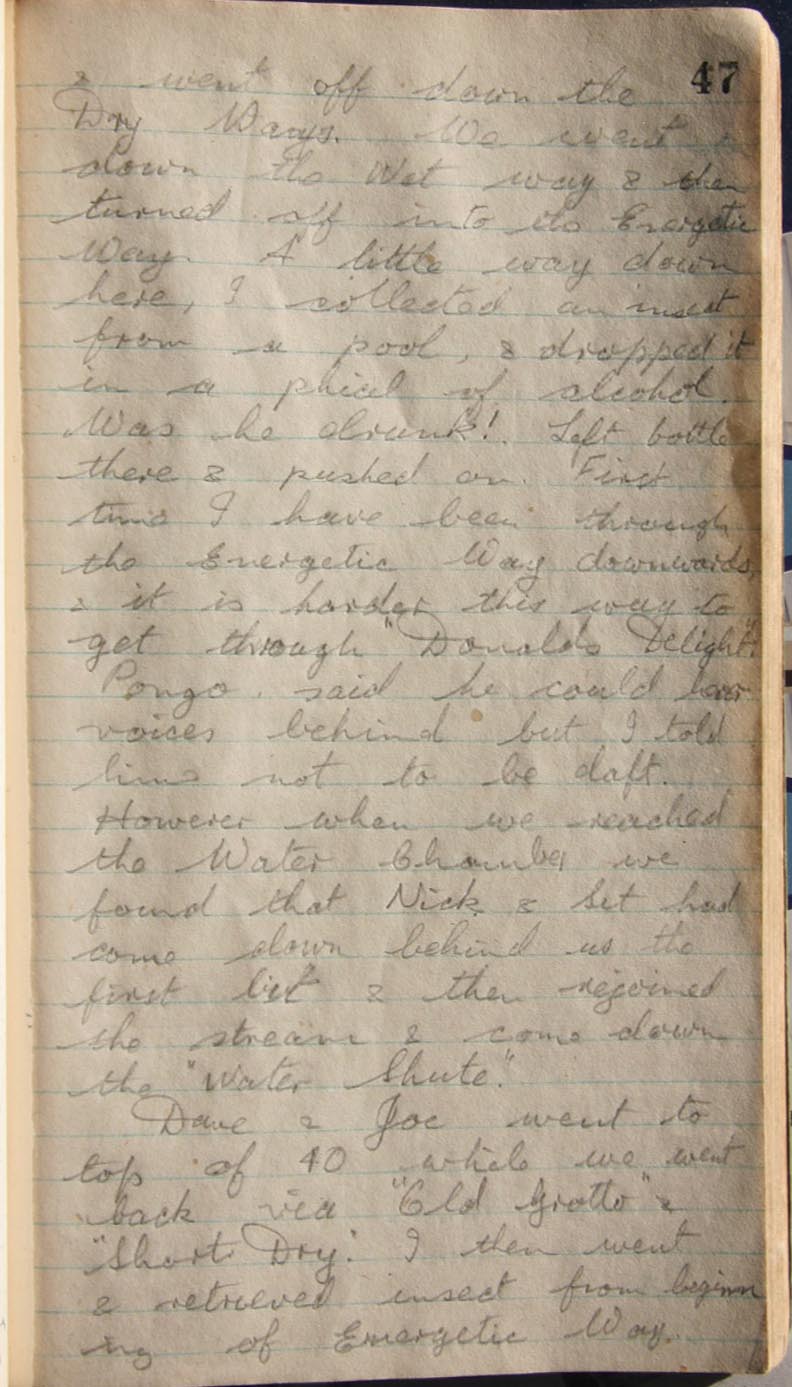 47
& went off down the
Dry Ways. We went
down the Wet way & then
turned off into the Energetic
Way. A little way down
here, I collected an insect
from a pool, & dropped it
in a phial of alcohol.
Was he drunk!. Left bottle
there & pushed on. First
time I have been through
the Energetic Way downwards,
& it is harder this way to
get through "Donalds Delight".
Pongo said he could hear
voices behind but I told
him not to be daft.
However when we reached
the Water Chamber we
found that Nick & Set had
come down behind us the
first bit & then rejoined
the stream & come down
the "Water Shute".
Dave & Joe went to
top of 40 while we went
back via "Old Grotto" &
"Short Dry." I then went
& retrieved insect from beginn
ing of Energetic Way.